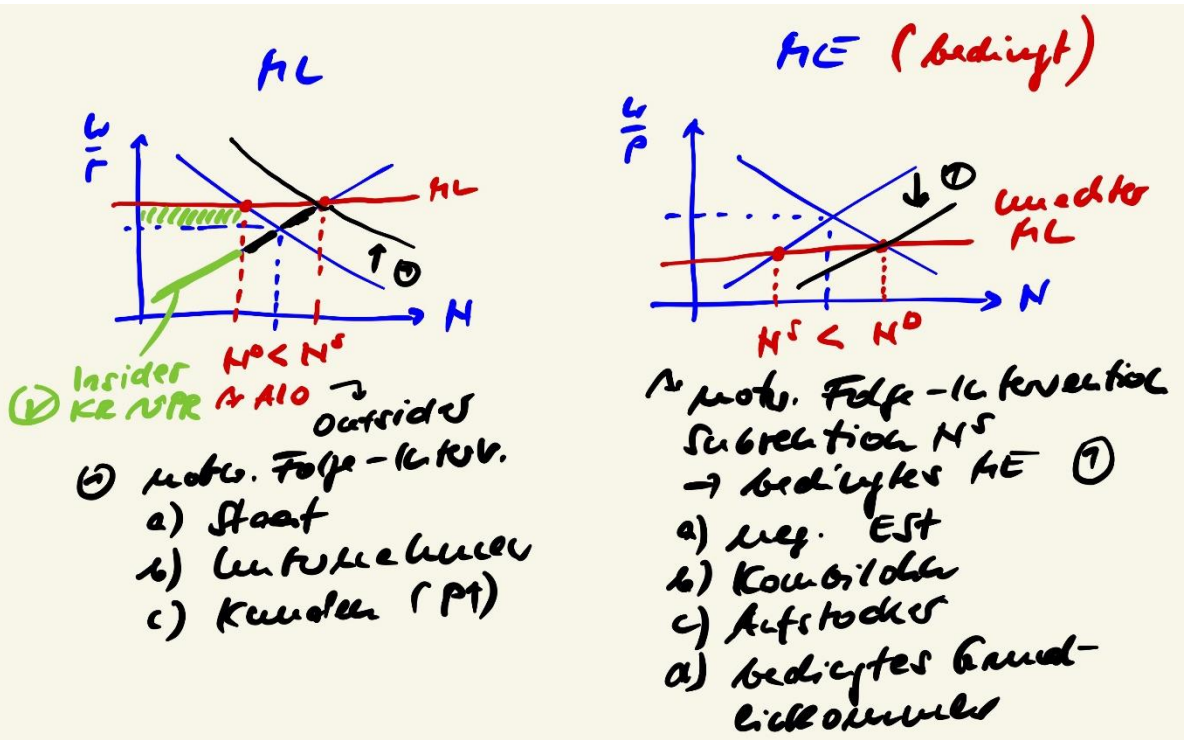 ML
W
P
ML
N
N^D < N^S
Insider
→ ALO
Outsider
notw. Folge-Interv.
a) Staat
b) Unternehmen
c) Kunden (P↑)
ME (bedingt)
W
P
①
unechter
ML
N
N^S < N^D
notw. Folge-Intervention
Subvention N^S
→ bedingtes ME ①
a) neg. ESt
b) Kombilohn
c) Aufstocker
d) bedingtes Grund-
einkommen